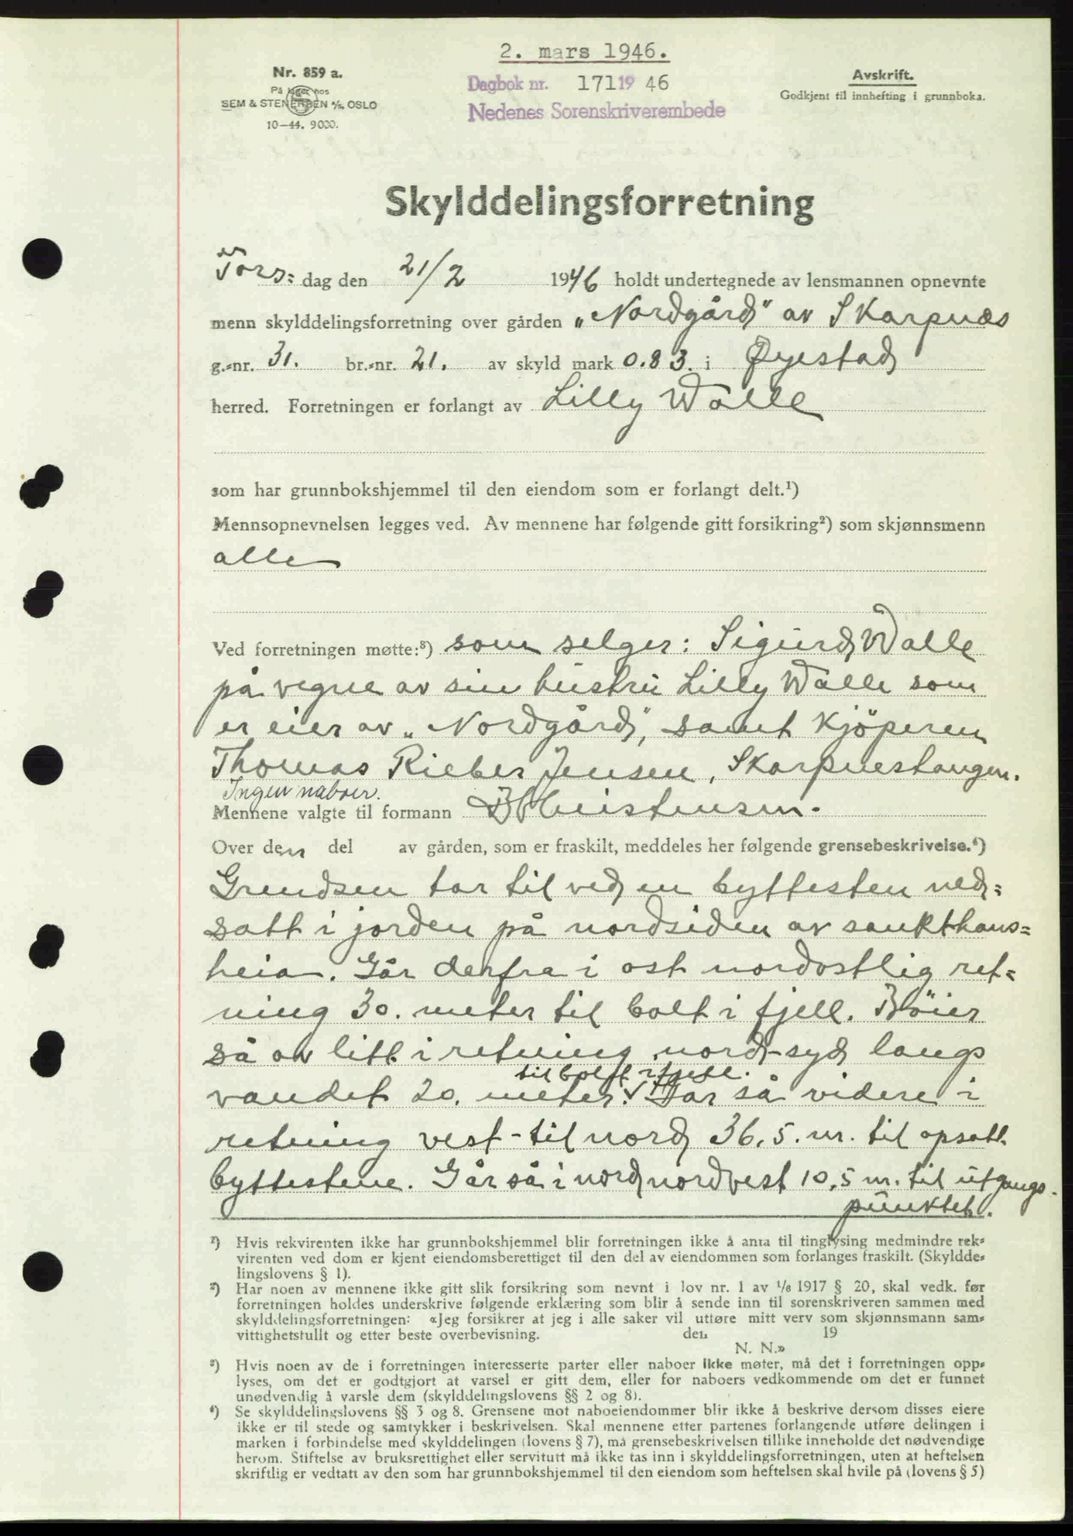 2. mars 1946.
Nr. 859 a.
På lager hos
SEM & STENERSEN A/S, OSLO
10-44. 9000.
Dagbok nr. 171 19 46
Nedenes Sorenskriverembede
Avskrift.
Godkjent til innhefting i grunnboka.
Skylddelingsforretning
Tors= dag den 21/2 1946 holdt undertegnede av lensmannen opnevnte
menn skylddelingsforretning over gården „Nordgård" av Skarpnes
g.-nr. 31. br.-nr. 21. av skyld mark 0.83. i Øyestad
herred. Forretningen er forlangt av Lilly Walle
som har grunnbokshjemmel til den eiendom som er forlangt delt.¹)
Mennsopnevnelsen legges ved. Av mennene har følgende gitt forsikring²) som skjønnsmenn
alle
Ved forretningen møtte:³) som selger: Sigurd Walle
på vegne av sin hustru Lilly Walle som
er eier av „Nordgård", samt kjöperen
Thomas Rieber Jensen, Skarpnestangen.
Ingen naboer.
Mennene valgte til formann B Christensen.
Over den del av gården, som er fraskilt, meddeles her følgende grensebeskrivelse.⁴)
Grendsen tar til ved en byttesten ned=
satt i jorden på nordsiden av sankthans=
heia. Går derfra i ost nordostlig ret=
ning 30. meter til bolt i fjell. Böier
så av litt i retning nord-syd langs
til bolt i fjell.
vandet 20. meter. Tar så videre i
retning vest-til nord 36,5. m. til opsatt
byttestene. Går så i nord nordvest 10,5 m. til utgangs-
punktet.
¹) Hvis rekvirenten ikke har grunnbokshjemmel blir forretningen ikke å anta til tinglysing medmindre rek-
virenten ved dom er kjent eiendomsberettiget til den del av eiendommen som forlanges fraskilt. (Skyldde-
lingslovens § 1).
²) Har noen av mennene ikke gitt slik forsikring som nevnt i lov nr. 1 av ¹/₆ 1917 § 20, skal vedk. før
forretningen holdes underskrive følgende erklæring som blir å sende inn til sorenskriveren sammen med
skylddelingsforretningen: «Jeg forsikrer at jeg i alle saker vil utføre mitt verv som skjønnsmann sam-
vittighetsfullt og etter beste overbevisning. den 19
N. N.»
³) Hvis noen av de i forretningen interesserte parter eller naboer ikke møter, må det i forretningen opp-
lyses, om det er godtgjort at varsel er gitt dem, eller for naboers vedkommende om det er funnet
unødvendig å varsle dem (skylddelingslovens §§ 2 og 8).
⁴) Se skylddelingslovens §§ 3 og 8. Grensene mot naboeiendommer blir ikke å beskrive dersom disses eiere
ikke er til stede og samtykker i beskrivelsen. Skal mennene etter partenes forlangende utføre delingen i
marken i forbindelse med skylddelingen (lovens § 7), må grensebeskrivelsen tillike inneholde det nødvendige
herom. Stiftelse av bruksrettighet eller servitutt må ikke tas inn i skylddelingsforretningen, uten at heftelsen
skriftlig er vedtatt av den som har grunnbokshjemmel til den eiendom som heftelsen skal hvile på (lovens § 5)